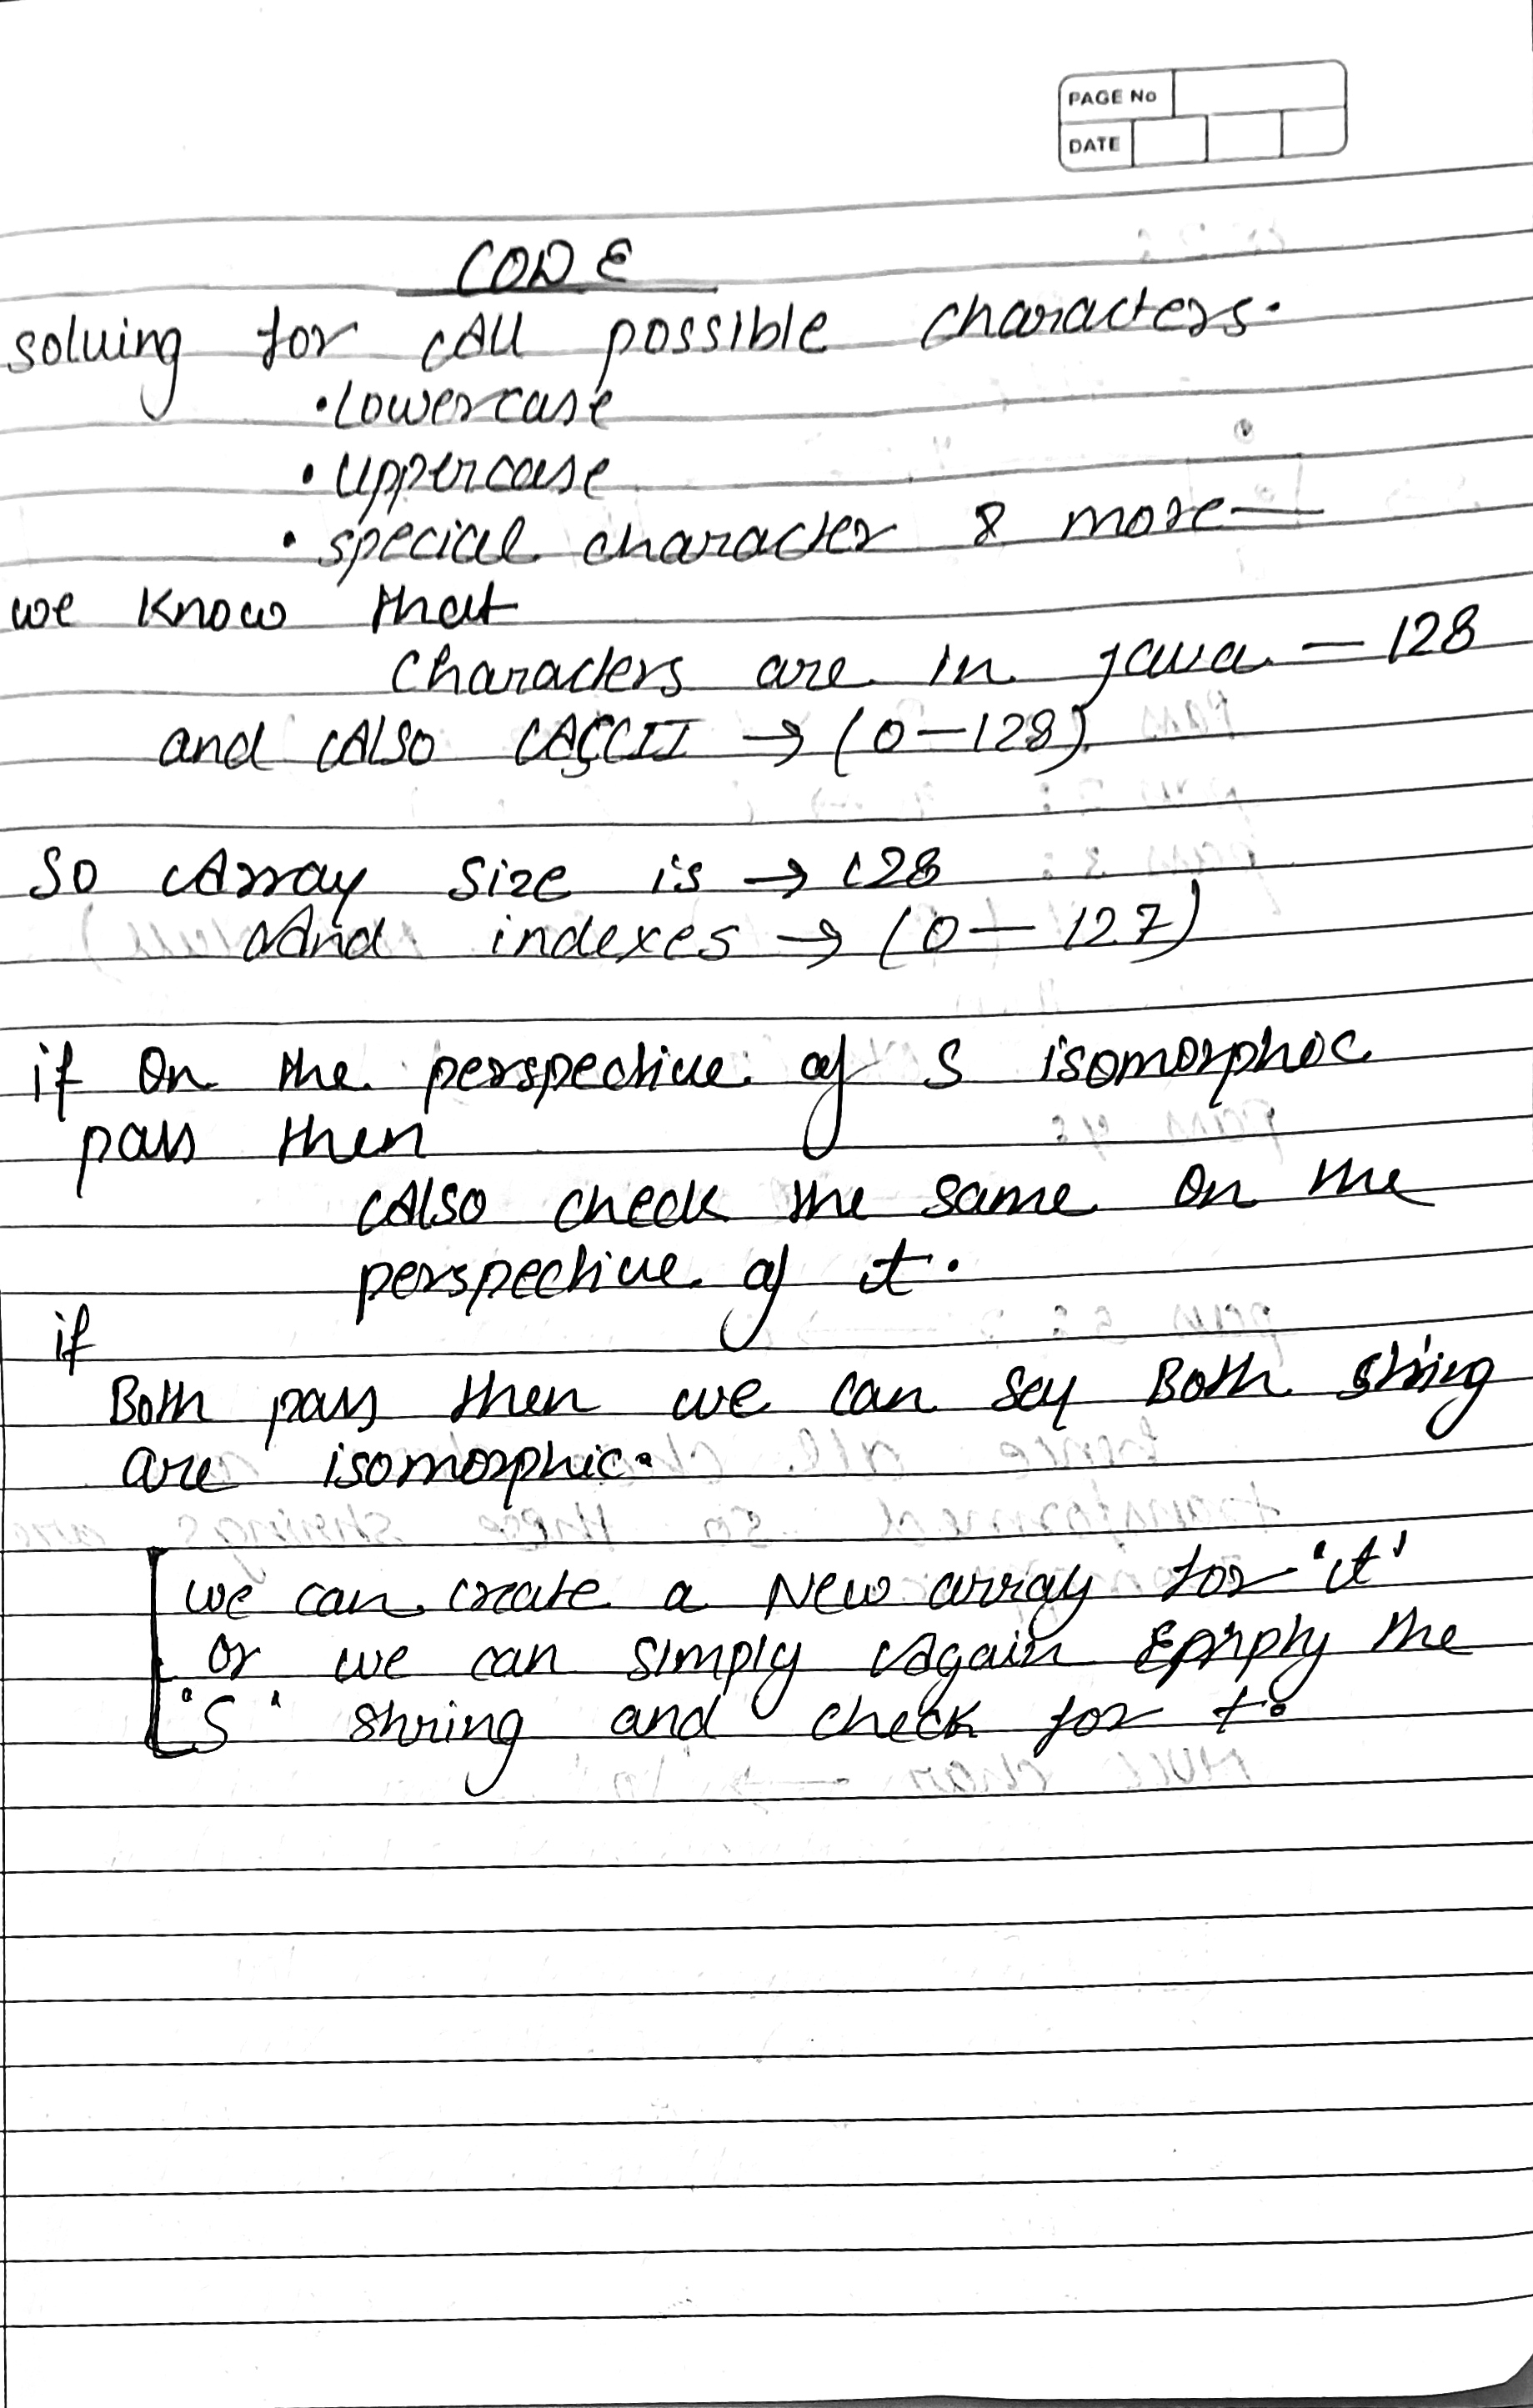 PAGE No
DATE
CODE
solving for All possible characters.
• Lowercase
• Uppercase
• special character & more —
we know that
characters are in java — 128
and Also ASCII → (0 – 128)
So Array size is → 128
And indexes → (0 – 127)
if on the perspective of S isomorphic
pass then
Also check the same on the
perspective of t.
if
Both pass then we can say Both string
are isomorphic.
we can create a New array for 't'
or we can simply Again Empty the
'S' string and check for t.